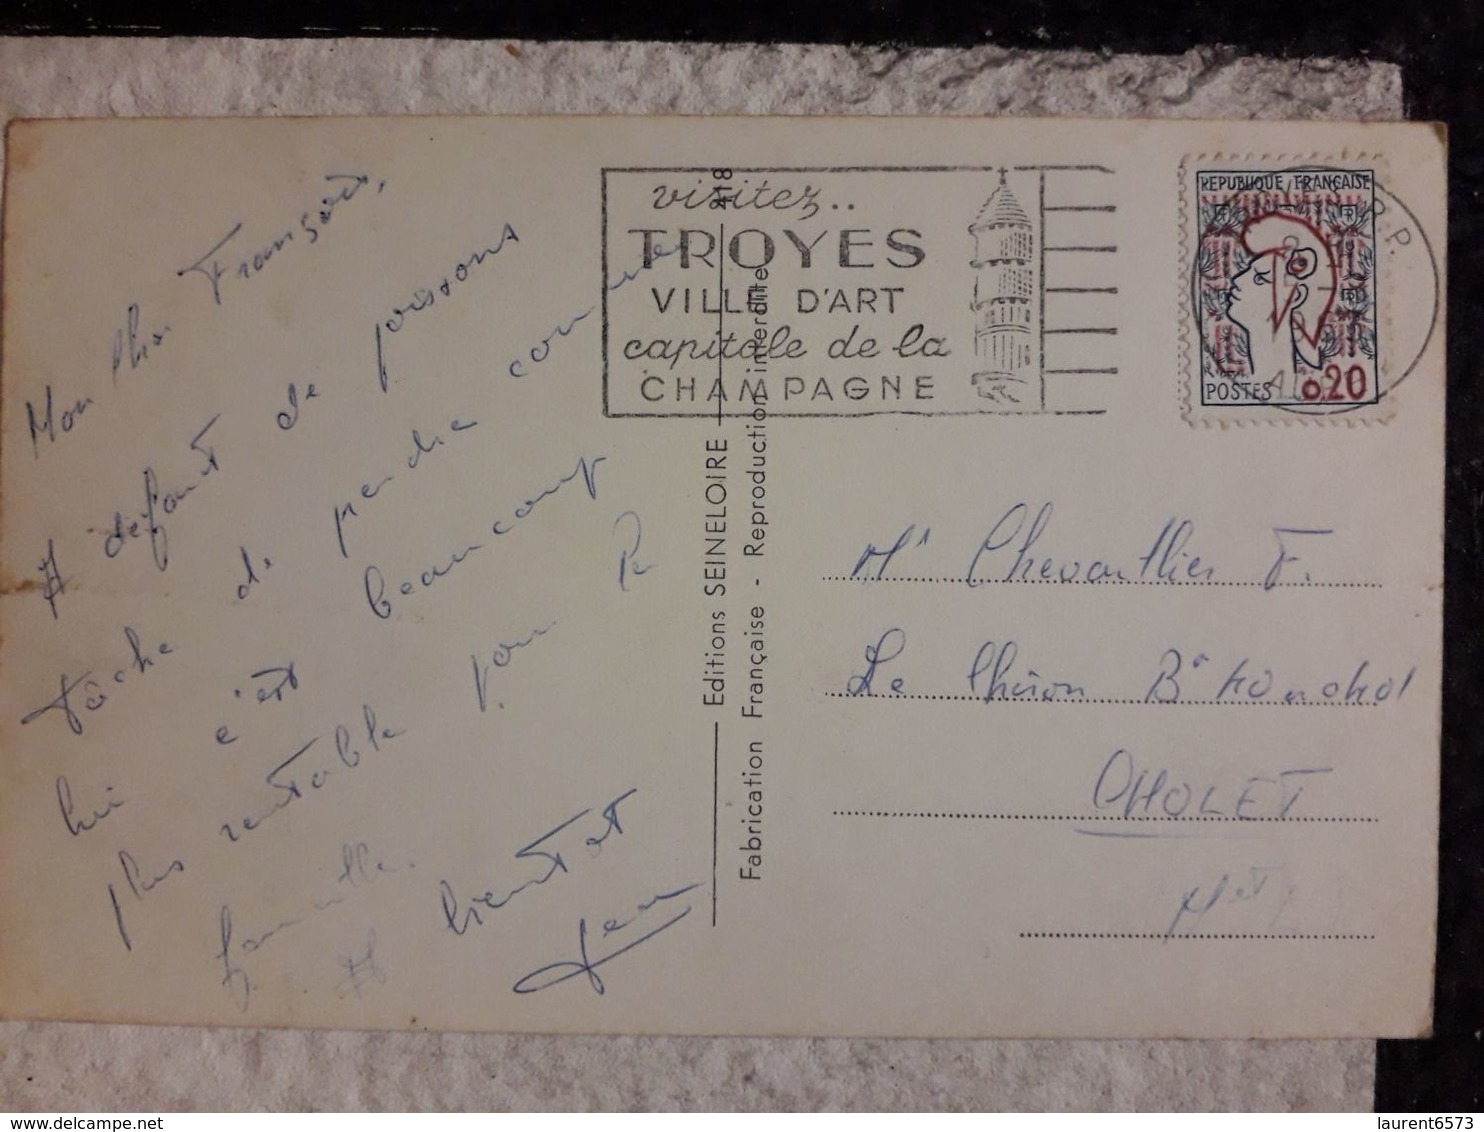 Mon cher Fransort,
A défaut de poissons
tâche de pendre comme
lui c'est beaucoup
plus rentable pour la
famille.
A bientot
Jean
418
Editions SEINELOIRE
Fabrication Française - Reproduction interdite
visitez..
TROYES
VILLE D'ART
capitale de la
CHAMPAGNE
REPUBLIQUE FRANÇAISE
POSTES 0,20
R.P.
Mr Chevallier F.
Le Chiron
CHOLET
M et L
laurent6573